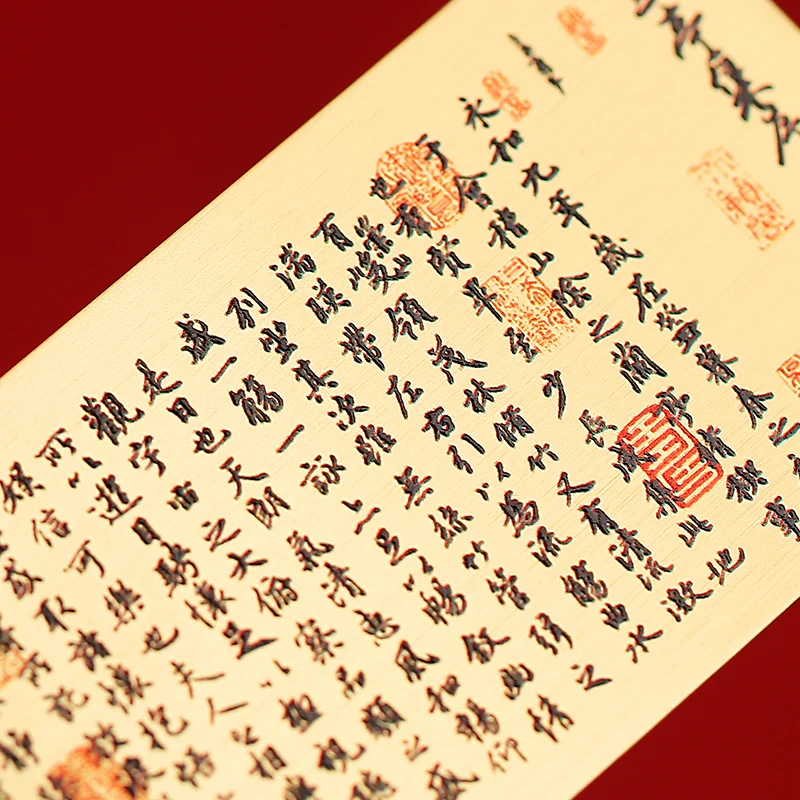 亭集序
永和九年歲在癸丑暮春之
于會稽山陰之蘭亭脩禊事
也羣賢畢至少長咸集此地
有崇山峻領茂林脩竹又有清流激
湍暎帶左右引以為流觴曲水
列坐其次雖無絲竹管弦之
盛一觴一詠亦足以暢敘幽情
是日也天朗氣清惠風和暢仰
觀宇宙之大俯察品類之盛
所以遊目騁懷足以極視聽
娛信可樂也夫人之相
或取諸懷抱悟
所託放浪